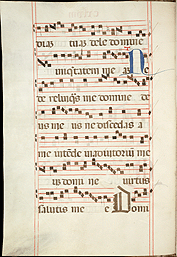 dias tuas dele domine
iniquitatem me am N
de relinquas me domine de
us me us ne discedas a
me intende in adiutorium me
us domi ne uirtus
salutis me e Domi